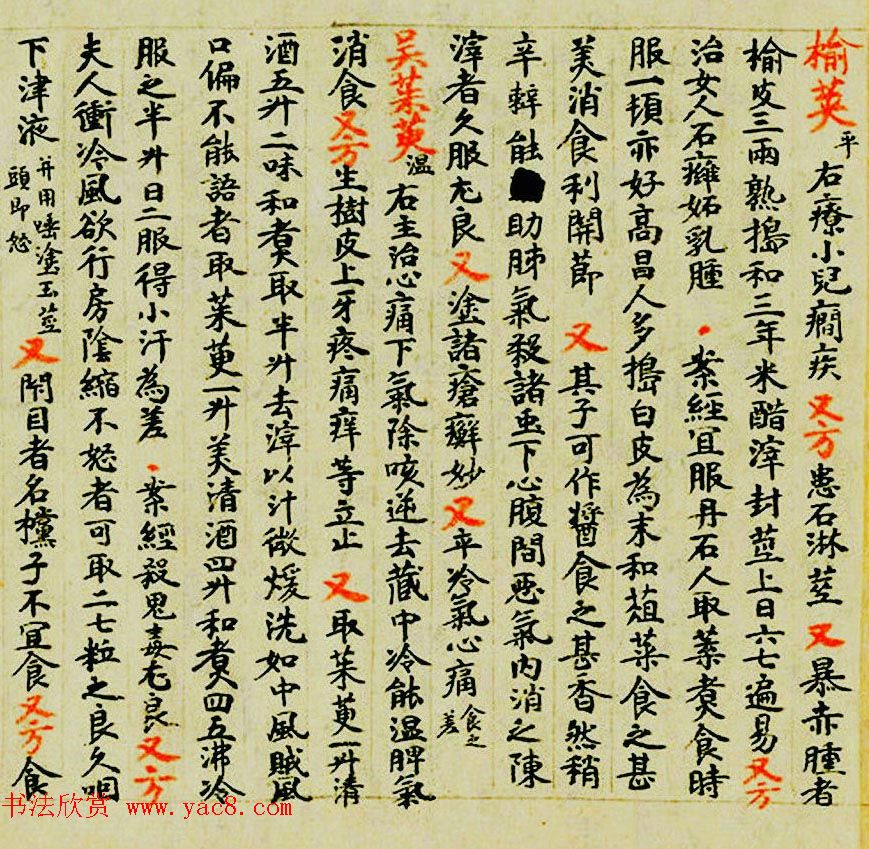 榆莢平 右療小兒癎疾 又方患石淋莖 又暴赤腫者
榆皮三兩熟搗和三年米醋滓封莖上日六七遍易 又方
治女人石癰妬乳腫 · 案經宜服丹石人取葉煑食時
服一頓亦好高昌人多搗白皮為末和菹菜食之甚
美消食利關節 又 其子可作醬食之甚香然稍
辛辣能助肺氣殺諸虫下心腹間惡氣內消之陳
滓者久服尤良 又 塗諸瘡癬妙 又 卒冷氣心痛食之差
吳茱萸溫 右主治心痛下氣除咳逆去藏中冷能溫脾氣
消食 又方 生樹皮上牙疼痛痒等立止 又 取茱萸一升清
酒五升二味和煑取半升去滓以汁微煖洗如中風賊風
口偏不能語者取茱萸一升美清酒四升和煑四五沸冷
服之半升日二服得小汗為差 · 案經殺鬼毒尤良 又方
夫人衝冷風欲行房陰縮不怒者可取二七粒之良久咽
下津液并用唾塗玉莖頭即怒 又 閉目者名欓子不宜食 又方 食
书法欣赏 www.yac8.com